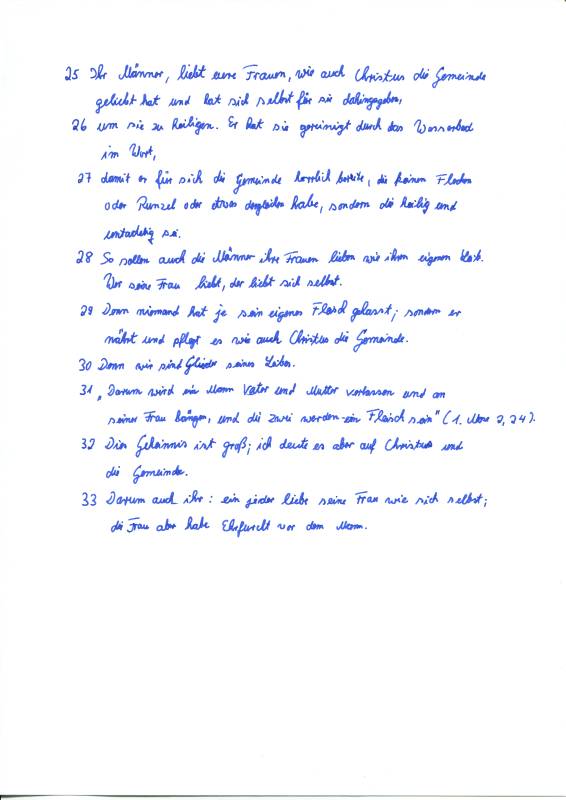 25 Ihr Männer, liebt eure Frauen, wie auch Christus die Gemeinde
geliebt hat und hat sich selbst für sie dahingegeben,
26 um sie zu heiligen. Er hat sie gereinigt durch das Wasserbad
im Wort,
27 damit er für sich die Gemeinde herrlich bereite, die keinen Flecken
oder Runzel oder etwas dergleichen habe, sondern die heilig und
untadelig sei.
28 So sollen auch die Männer ihre Frauen lieben wie ihren eigenen Leib.
Wer seine Frau liebt, der liebt sich selbst.
29 Denn niemand hat je sein eigenes Fleisch gehasst; sondern er
nährt und pflegt es wie auch Christus die Gemeinde.
30 Denn wir sind Glieder seines Leibes.
31 „Darum wird ein Mann Vater und Mutter verlassen und an
seiner Frau hängen, und die zwei werden ein Fleisch sein" (1. Mose 2, 24).
32 Dies Geheimnis ist groß; ich deute es aber auf Christus und
die Gemeinde.
33 Darum auch ihr: ein jeder liebe seine Frau wie sich selbst;
die Frau aber habe Ehrfurcht vor dem Mann.